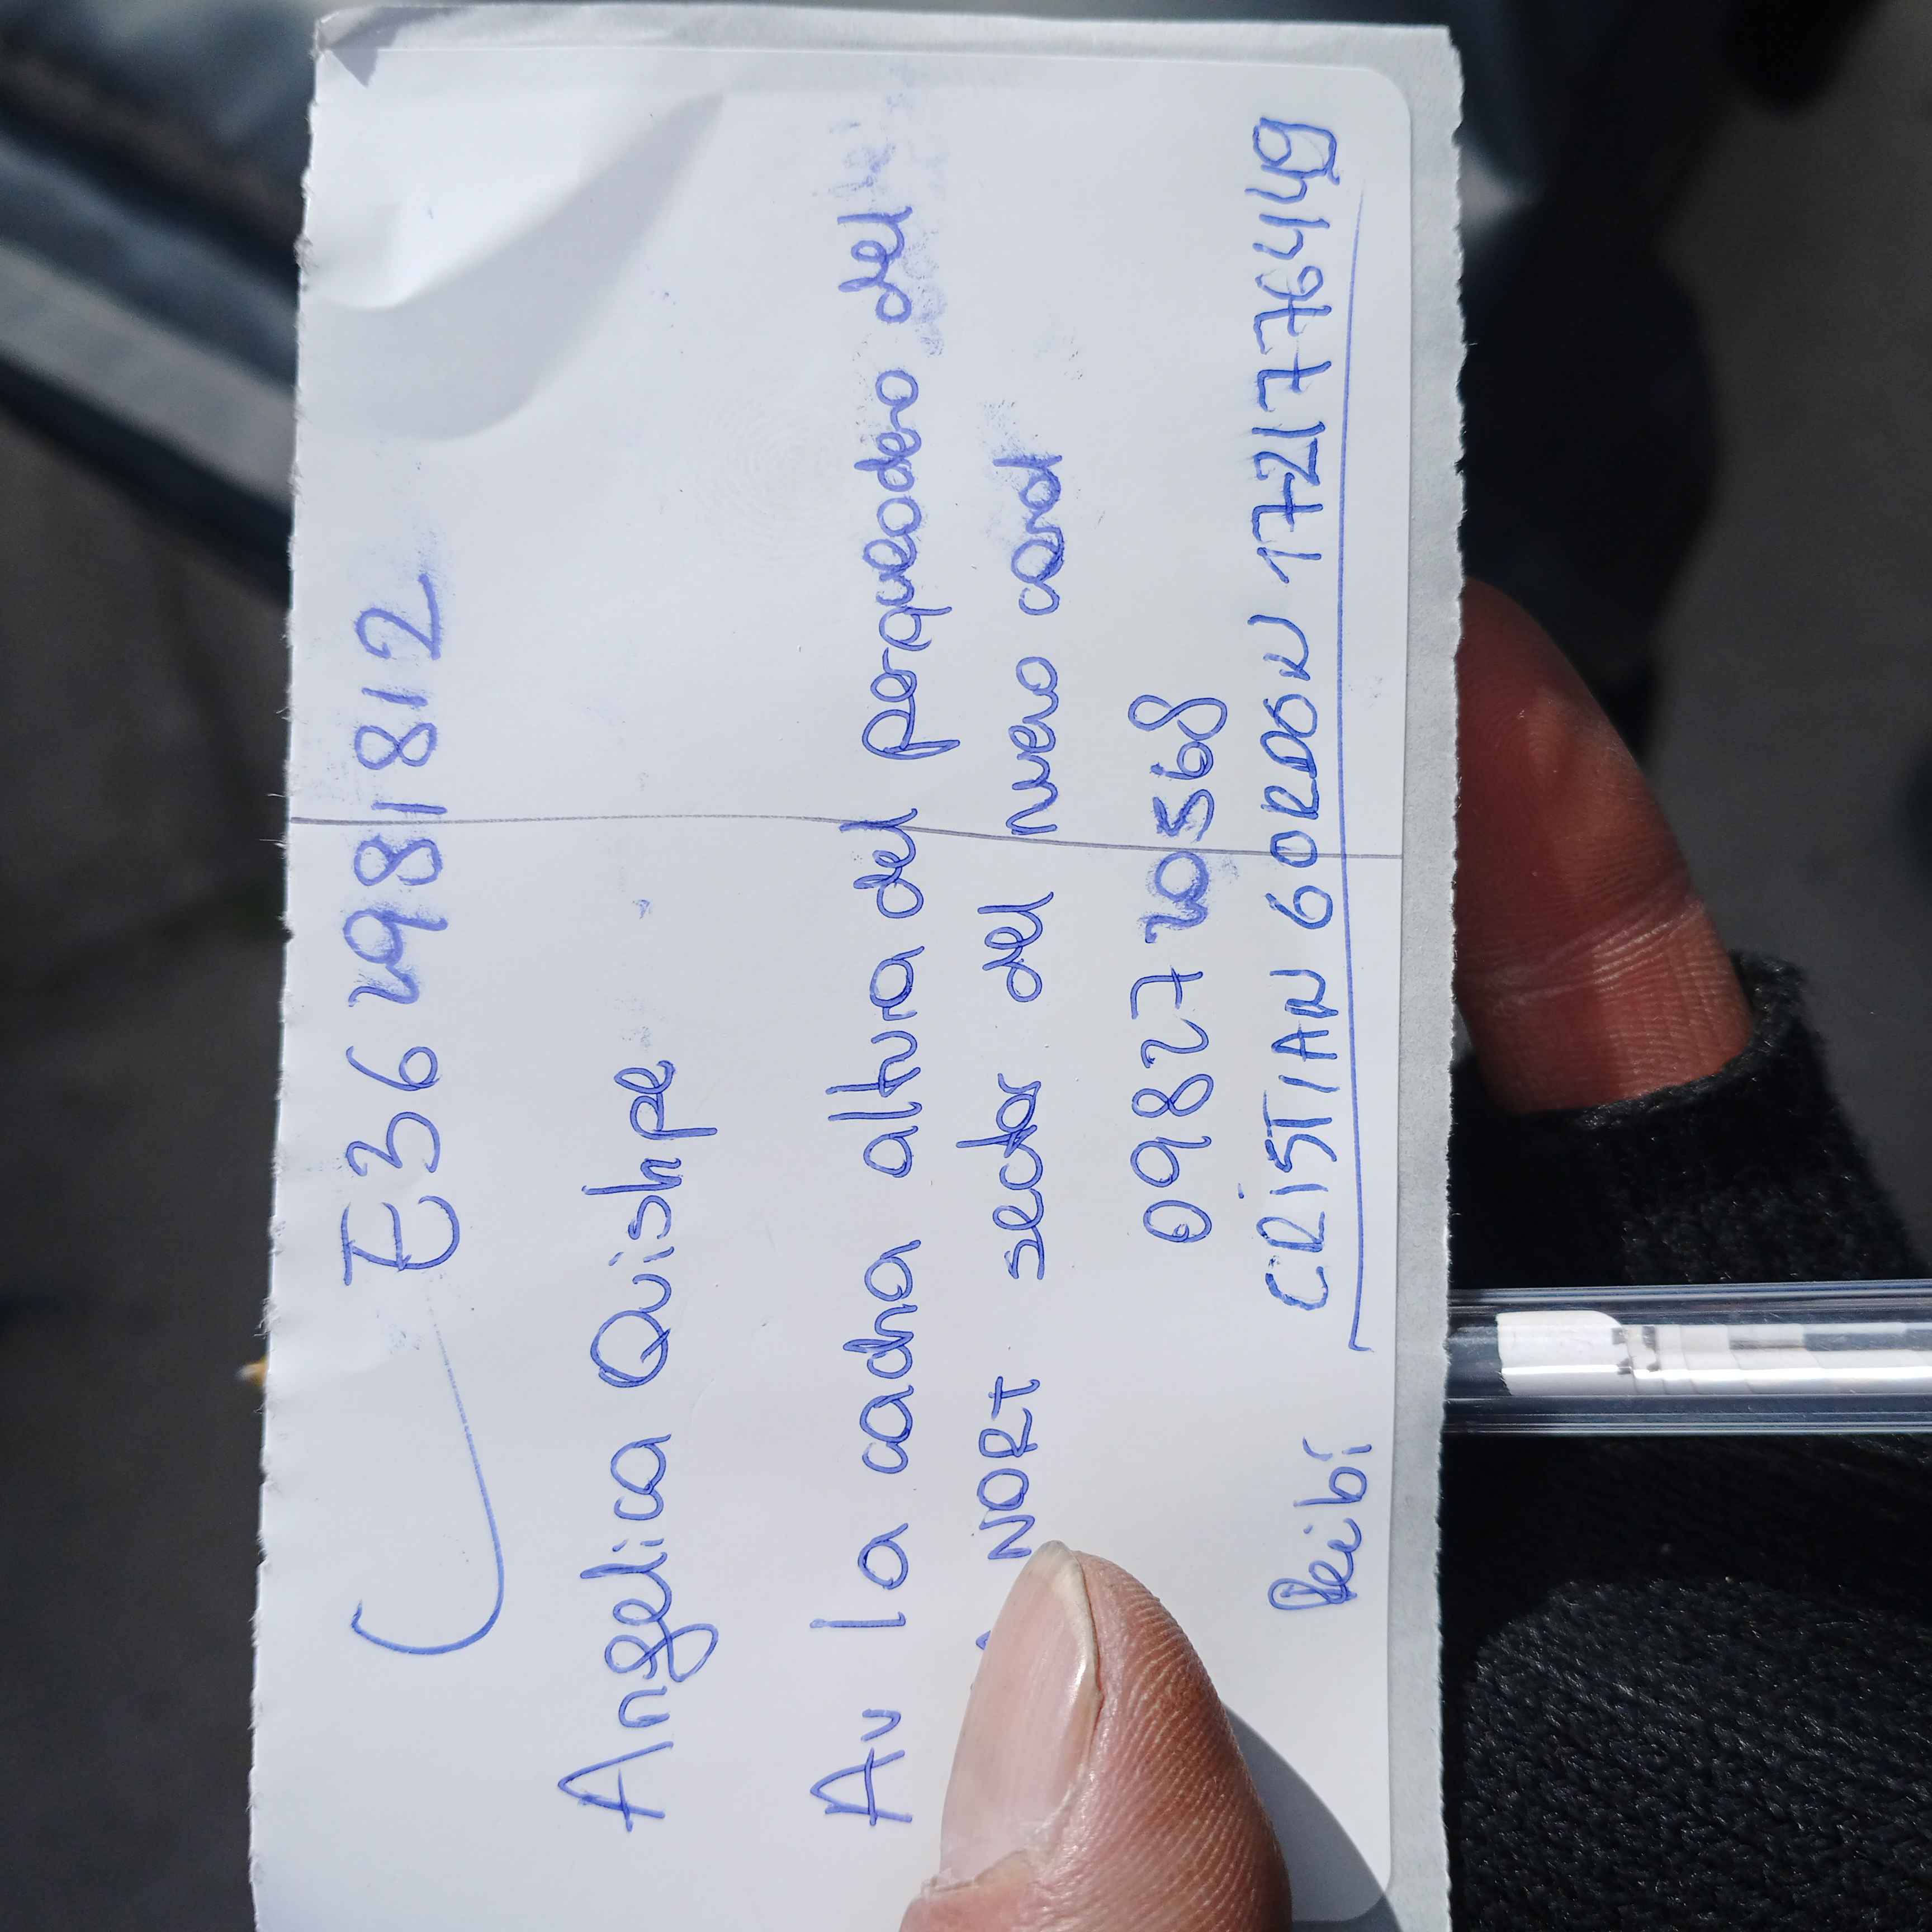 E362981812
Angelica Quishpe
Av la cocha altura del parqueadero del
NORT sector del nuevo canal
0982720568
Recibí CRISTIAN GORDON 1721776449